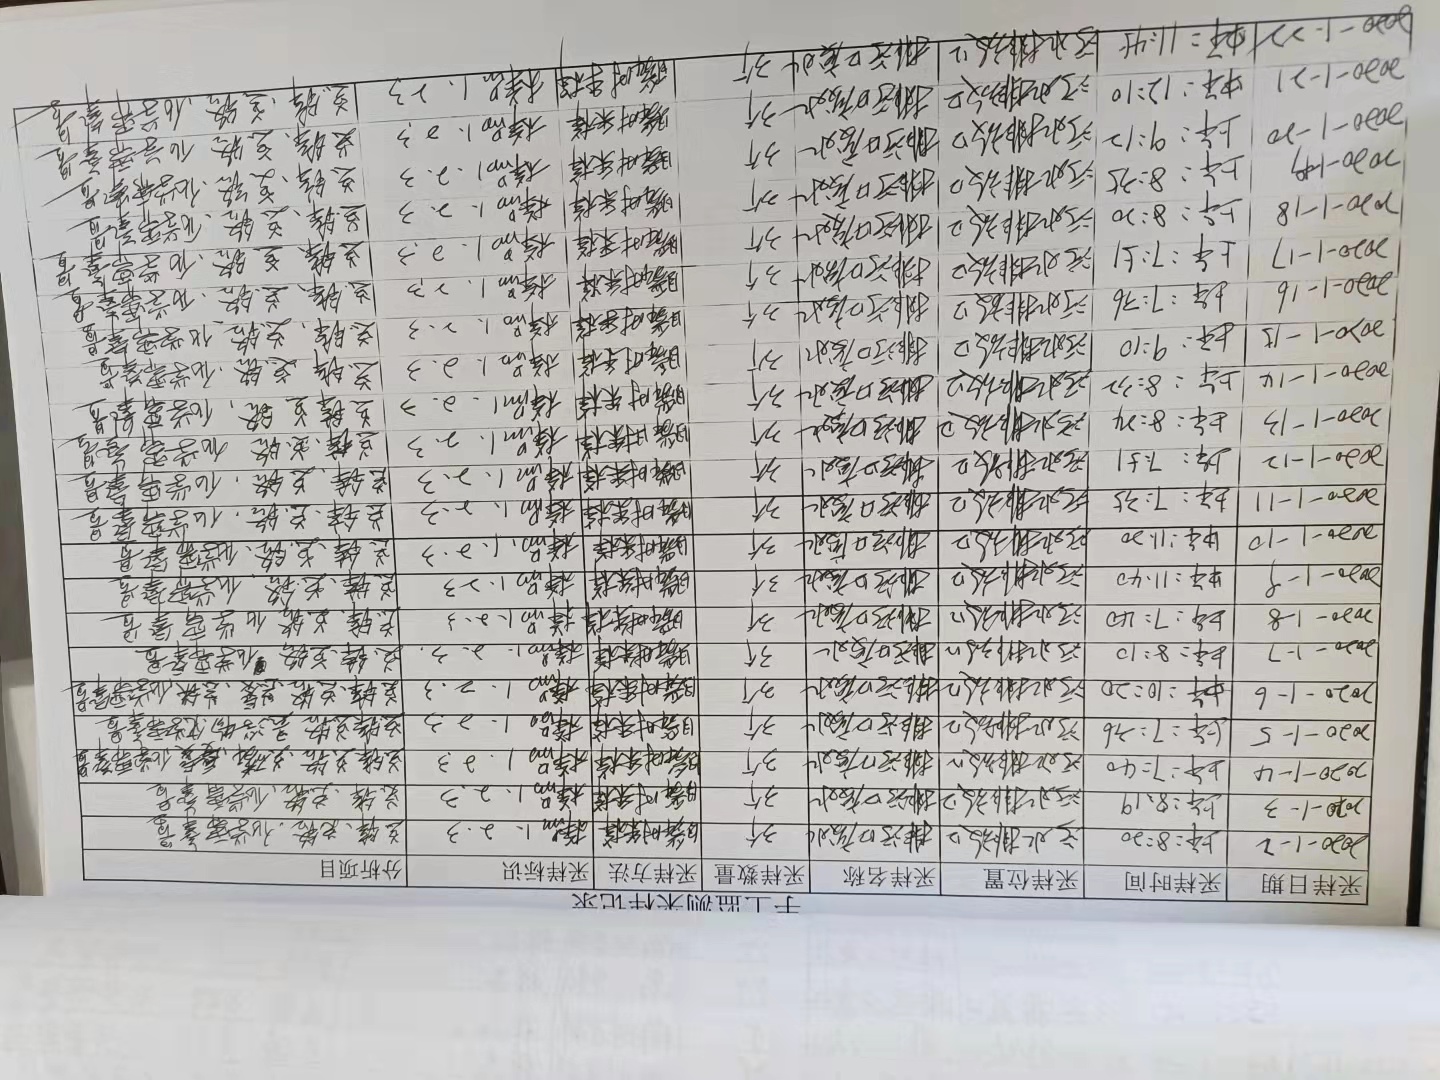 手工监测采样记录
采样日期 采样时间 采样位置 采样名称 采样数量 采样方法 采样标识 分析项目
2020-1-2 上午:8:20 污水排放口 排污口废水 3个 瞬时采样 样品 1.2.3 总锌、化学需氧量
2020-1-3 上午:8:19 污水排放口 排污口废水 3个 瞬时采样 样品 1.2.3 总锌、化学需氧量
2020-1-4 上午:7:40 污水排放口 排污口废水 3个 瞬时采样 样品 1.2.3 总锌、化学需氧量
2020-1-5 上午:7:36 污水排放口 排污口废水 3个 瞬时采样 样品 1.2.3 总锌、化学需氧量
2020-1-6 10:20 污水排放口 排污口废水 3个 瞬时采样 样品 1.2.3 总锌、化学需氧量
2020-1-7 上午:8:10 污水排放口 排污口废水 3个 瞬时采样 样品 1.2.3 总锌、化学需氧量
2020-1-8 上午:7:40 污水排放口 排污口废水 3个 瞬时采样 样品 1.2.3 总锌、化学需氧量
2020-1-9 中午:11:40 污水排放口 排污口废水 3个 瞬时采样 样品 1.2.3 总锌、化学需氧量
2020-1-10 中午:11:20 污水排放口 排污口废水 3个 瞬时采样 样品 1.2.3 总锌、化学需氧量
2020-1-11 上午:7:35 污水排放口 排污口废水 3个 瞬时采样 样品 1.2.3 总锌、化学需氧量
2020-1-12 上午:7:51 污水排放口 排污口废水 3个 瞬时采样 样品 1.2.3 总锌、化学需氧量
2020-1-13 上午:8:24 污水排放口 排污口废水 3个 瞬时采样 样品 1.2.3 总锌、化学需氧量
2020-1-14 上午:8:32 污水排放口 排污口废水 3个 瞬时采样 样品 1.2.3 总锌、化学需氧量
2020-1-15 上午:9:10 污水排放口 排污口废水 3个 瞬时采样 样品 1.2.3 总锌、化学需氧量
2020-1-16 上午:7:36 污水排放口 排污口废水 3个 瞬时采样 样品 1.2.3 总锌、化学需氧量
2020-1-17 上午:7:51 污水排放口 排污口废水 3个 瞬时采样 样品 1.2.3 总锌、化学需氧量
2020-1-18 上午:8:20 污水排放口 排污口废水 3个 瞬时采样 样品 1.2.3 总锌、化学需氧量
2020-1-19 上午:8:35 污水排放口 排污口废水 3个 瞬时采样 样品 1.2.3 总锌、化学需氧量
2020-1-20 上午:9:12 污水排放口 排污口废水 3个 瞬时采样 样品 1.2.3 总锌、化学需氧量
2020-1-21 中午:12:10 污水排放口 排污口废水 3个 瞬时采样 样品 1.2.3 总锌、化学需氧量
2020-1-22 中午:11:45 污水排放口 排污口废水 3个 瞬时采样 样品 1.2.3 总锌、化学需氧量